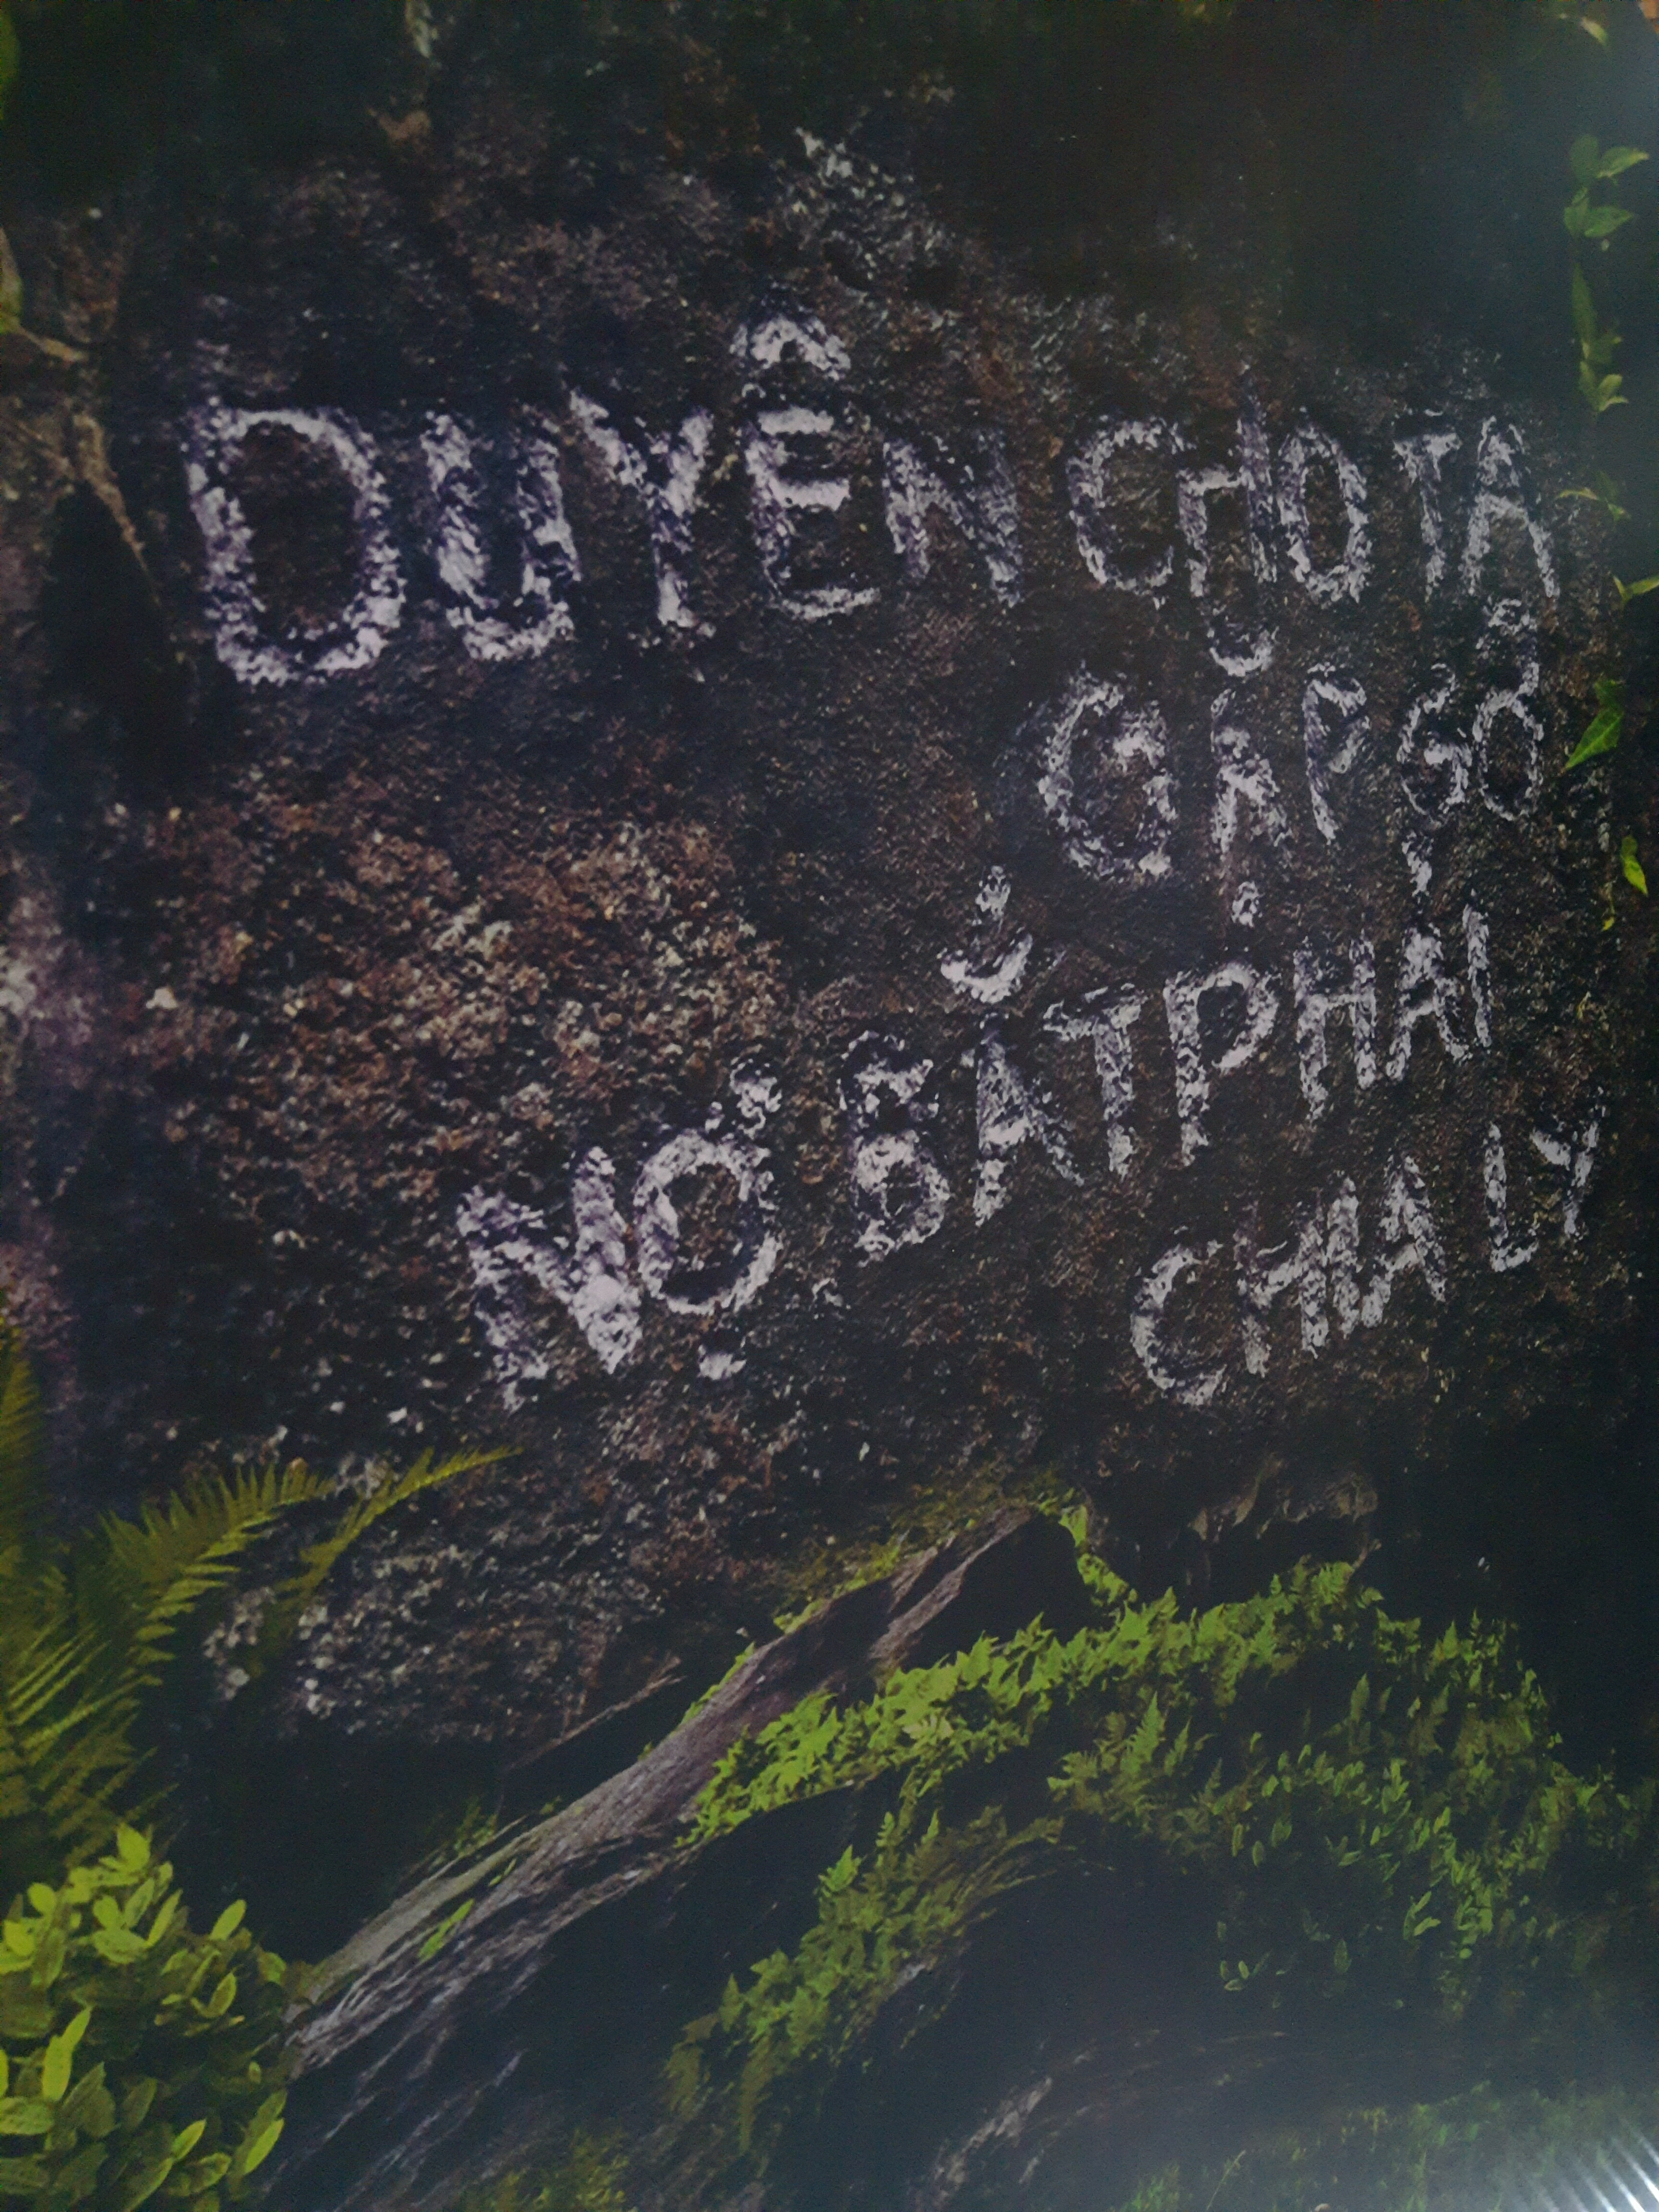 DUYÊN CHO TA
GẶP GỠ
NỢ BẮT PHẢI
CHIA LY